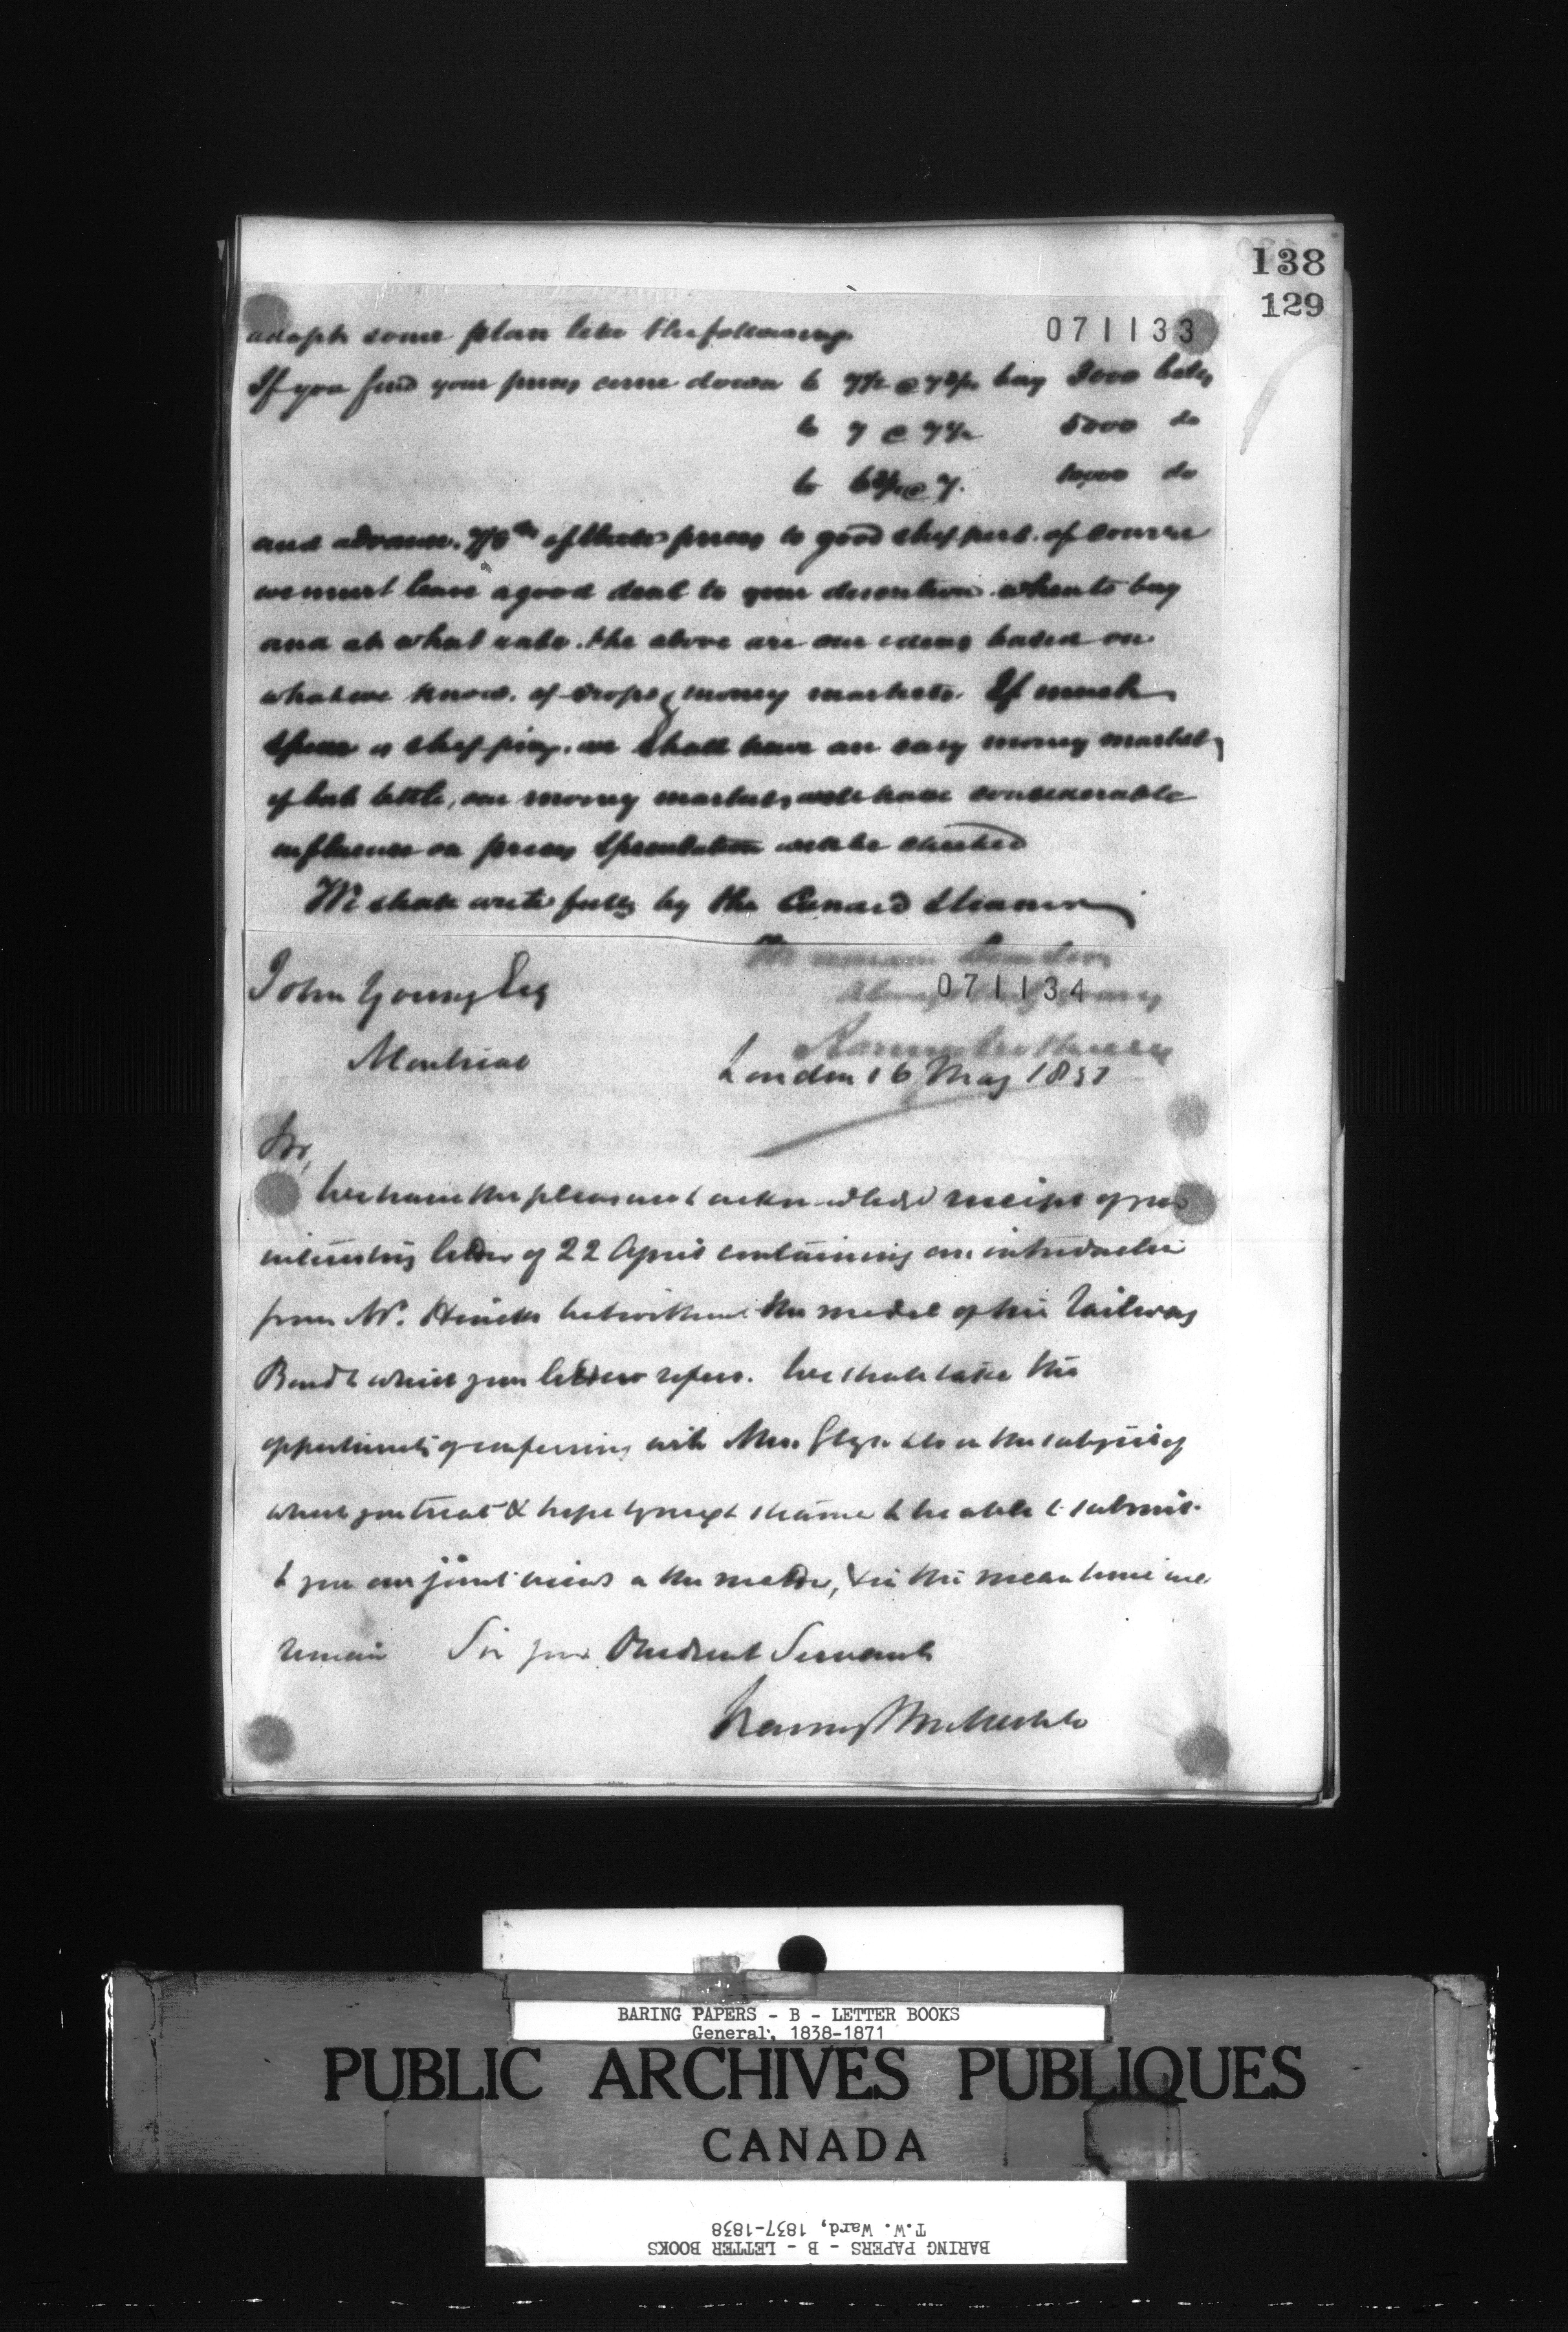 138
129
071133
adopt some plan like the following
If you find your prices come down to 7½ @ 7¾ buy 3000 bales
to 7 @ 7½ 5000 do
to 6¾ @ 7. 10,000 do
and advance. 7/8ths of these prices to good shippers. of course
we must leave a good deal to your discretion when to buy
and at what rate. the above are our ideas based on
what we know. of crops & money markets. If much
is shipping. we shall have an easy money market,
if but little, our money market will have considerable
influence on prices Speculation will be checked
We shall write fully by the Cunard Steamer
We remain Dear Sirs
071134
John Young Esq
Montreal
Baring Brothers
London 16 May 1851
Sir,
We have the pleasure to acknowledge receipt of your
interesting letter of 22 April containing an introduction
from Mr. Hincks but without the model of his Railway
Bond to which your letter refers. We shall take the
opportunity of conferring with Mess. Glyn & Co on the subject of
which you treat & hope by next steamer to be able to submit
to you our joint views on the matter, & in the mean time we
remain Sir your Obedient Servants
Baring Brothers & Co
BARING PAPERS - B - LETTER BOOKS
General, 1838-1871
PUBLIC ARCHIVES PUBLIQUES
CANADA
T.W. Ward, 1837-1838
BARING PAPERS - B - LETTER BOOKS